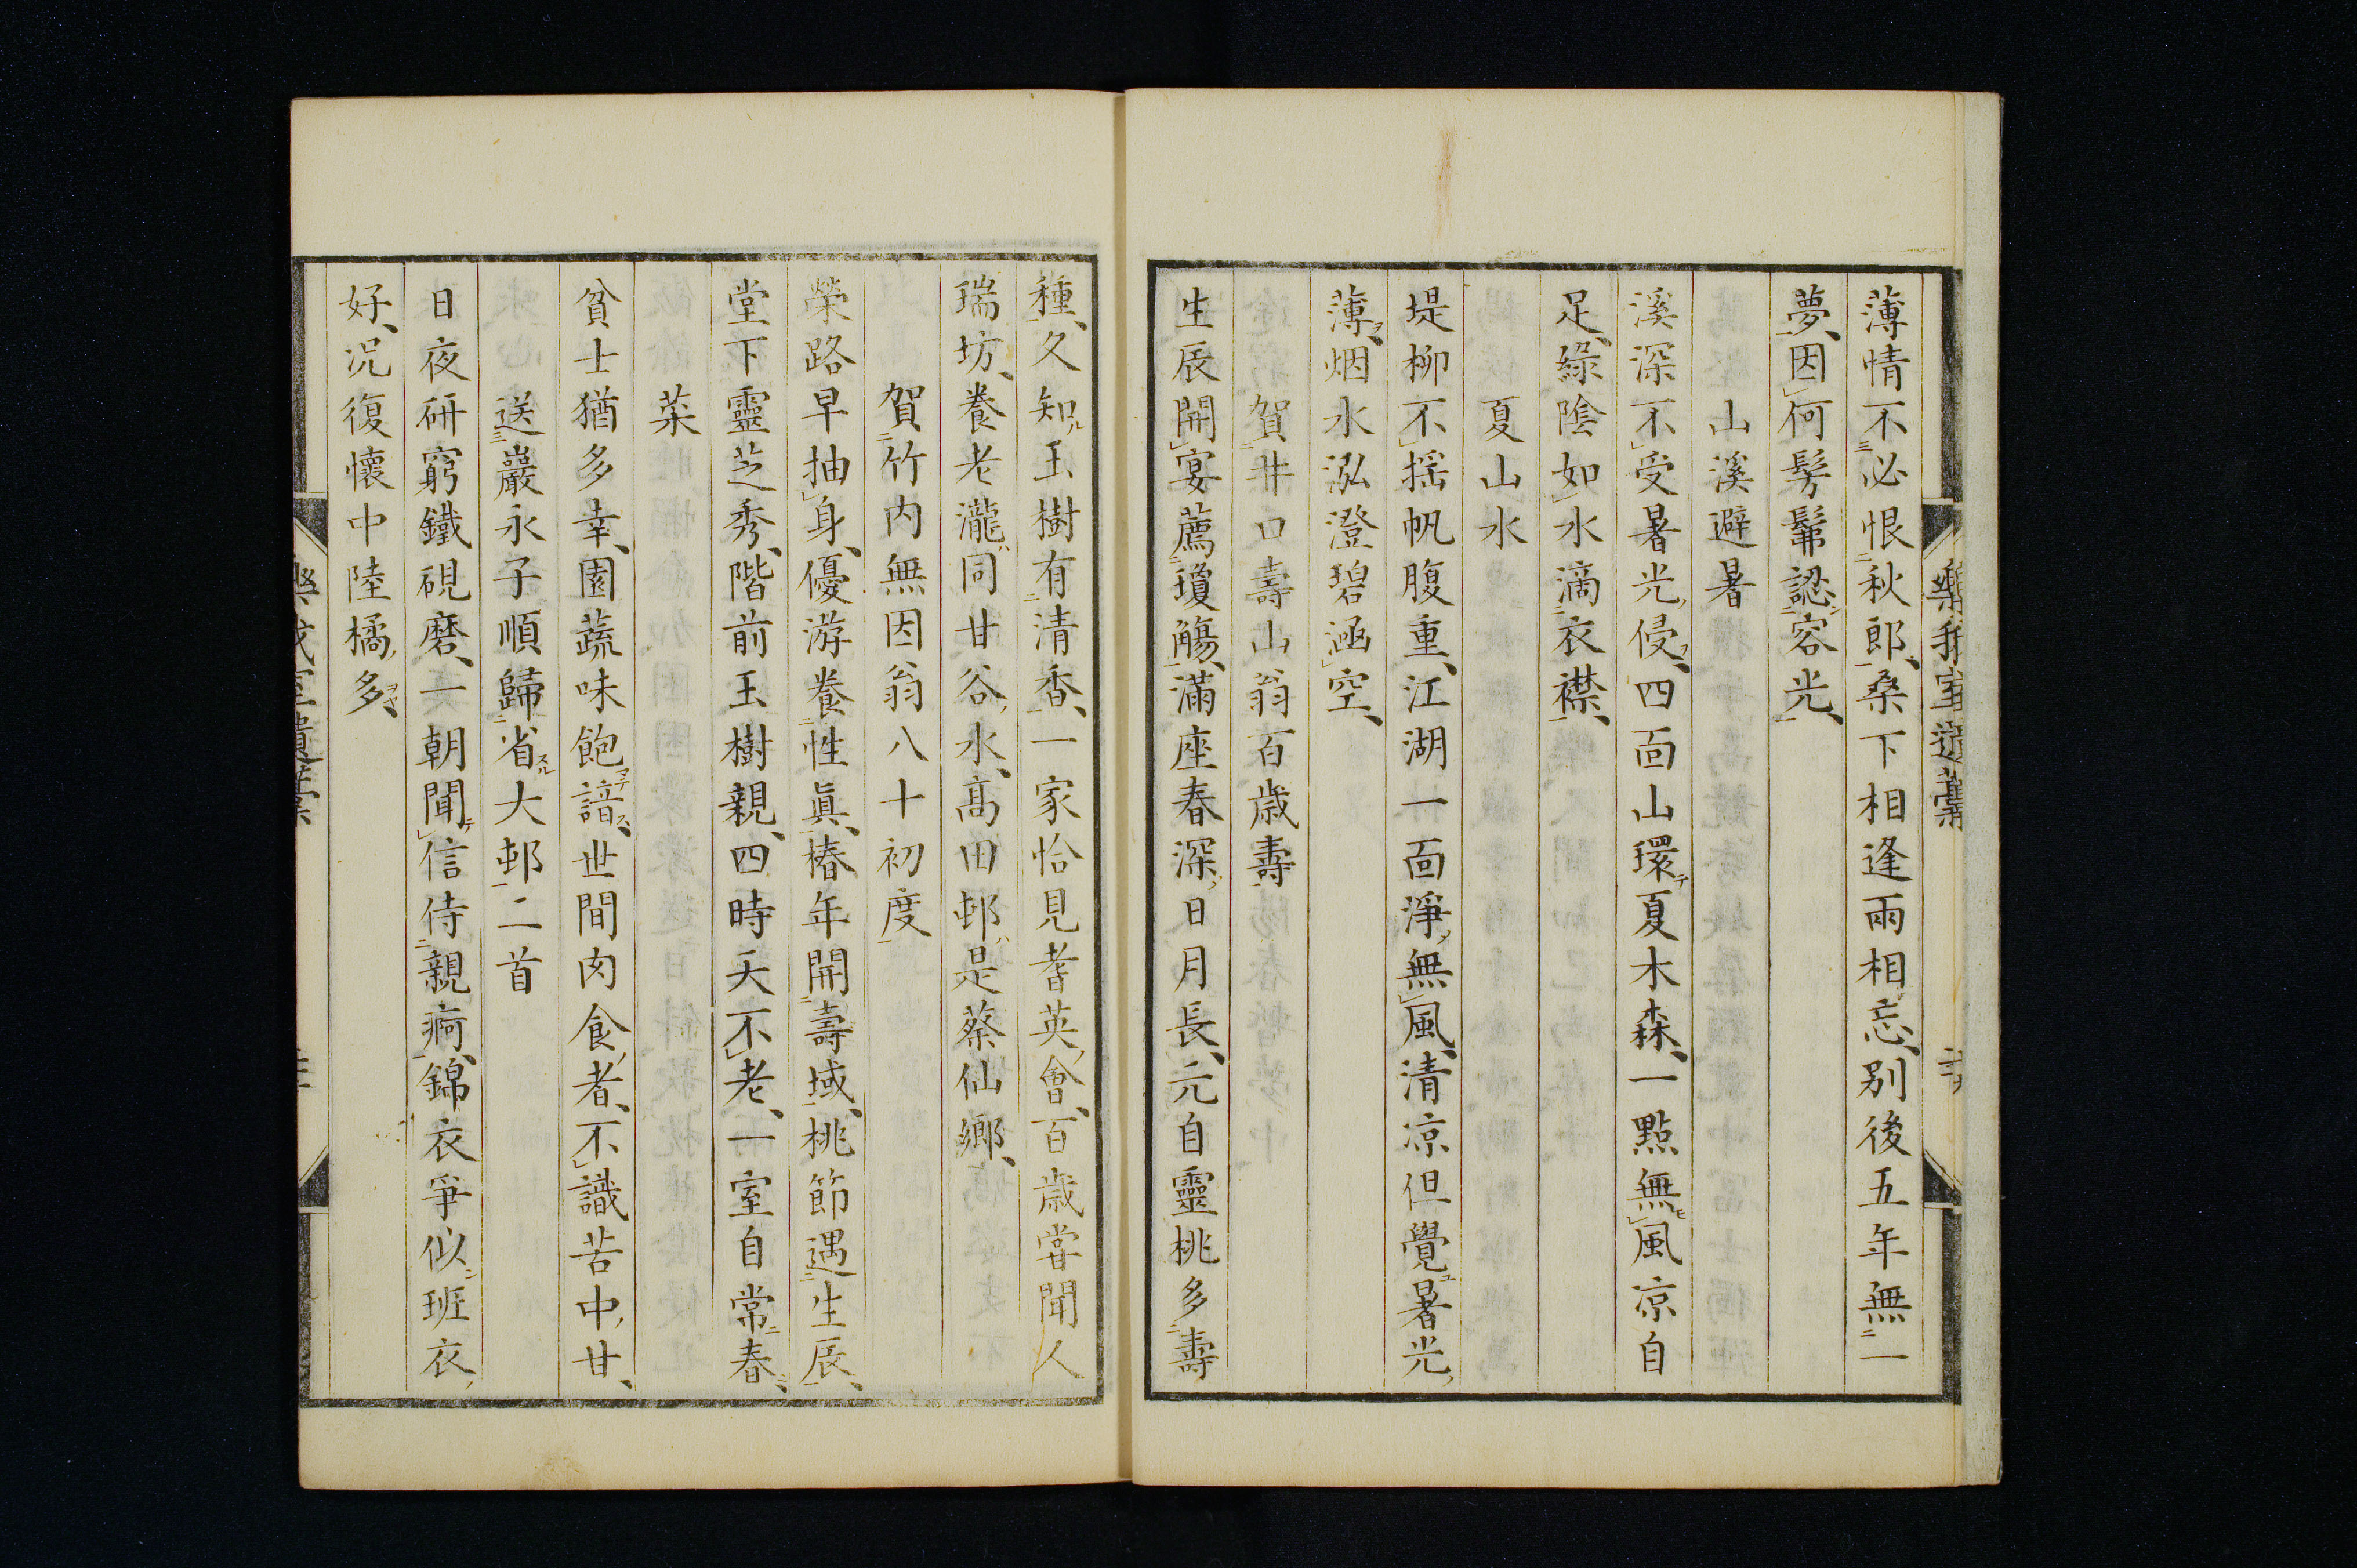 薄情不必恨秋郎桑下相逢兩相忘別後五年無一
夢因何髣髴認容光
山溪避暑
溪深不受暑光侵四面山環夏木森一點無風凉自
足綠陰如水滴衣襟
夏山水
堤柳不揺帆腹重江湖一面淨無風清凉但覺暑光
薄烟水泓澄碧涵空
賀井口壽山翁百歲壽
生辰開宴薦瓊觴滿座春深日月長元自靈桃多壽
種久知玉樹有清香一家恰見耆英會百歲甞聞人
瑞坊養老瀧同甘谷水高田邨是蔡仙鄉
賀竹内無因翁八十初度
榮路早抽身優游養性眞椿年開壽域桃節遇生辰
堂下靈芝秀階前玉樹親四時天不老一室自常春
菜
貧士猶多幸園蔬味飽諳世間肉食者不識苦中甘
送巖永子順歸省大邨二首
日夜研窮鐵硯磨一朝聞信侍親痾錦衣爭似班衣
好況復懷中陸橘多